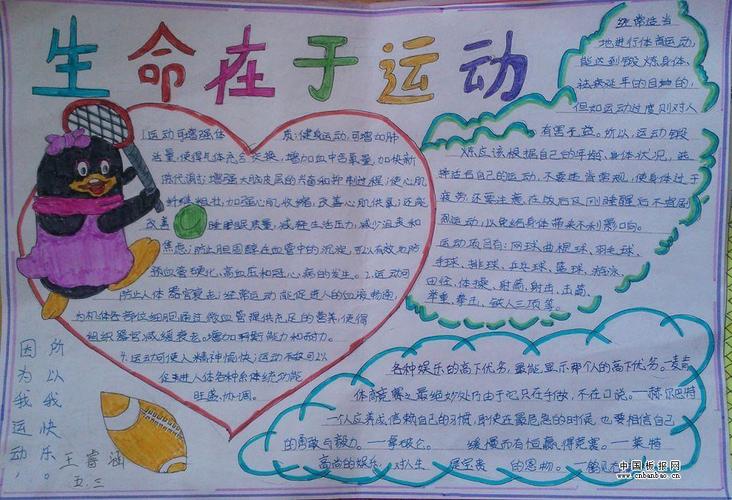 生命在于运动
1.运动可增强体质:健身运动,可增加肺
活量,使得与体充分交换,增加血中含氧量,加快新
陈代谢;增强大脑皮层的兴奋和抑制过程;使心肌
纤维粗壮,加强心肌收缩,改善心肌供氧;还能
改善睡眠质量,减轻生活压力,减少沮丧和
焦虑;防止胆固醇在血管中的沉淀,可以有效的防
预血管硬化,高血压和冠心病的发生。2.运动可
防止人体器官衰老;经常运动能促进人的血液物通,
为机体各部位细胞通过微血管提供充足的营养,使得
组织器官减缓衰老。增加判断能力和耐力。
4.运动可使人精神愉快;运动不仅可以
促进人体各种系统功能
旺盛、协调。
经常适当
地进行体育运动,
能达到锻炼身体,
祛病延年的目的,
但如运动过度则对人
有害无益。所以,运动锻
炼应该根据自己的年龄、身体状况,选
择适石自己的运动,不要违背常规,使身体过于
疲劳还要注意在饭后及刚睡醒后不宜剧
烈运动,以免给身体带来不利影响。
运动项目有:网球、曲棍球、羽毛球、
手球、排球、乒乓球、篮球、游泳、
田径、体操、射箭、射击、击箭、
举重、拳击、铁人三项等。
各种娱乐的高下优劣,最能显示那个人的高下优劣。—麦肯
体育竞赛之最绝妙处乃由于它只在手做,不在口说。—赫尔巴特
一个人应养成信赖自己的习惯,即使在最危急的时候,也要相信自己
的勇敢与毅力。—拿破仑。 缓慢而有恒赢得竞赛。—莱特
高尚的娱乐,对人生是宝贵的恩物。—鹤见
所以我快乐。
因为我运动,
王睿涵
五.三
中国板报网
www.cnbanbao.cn